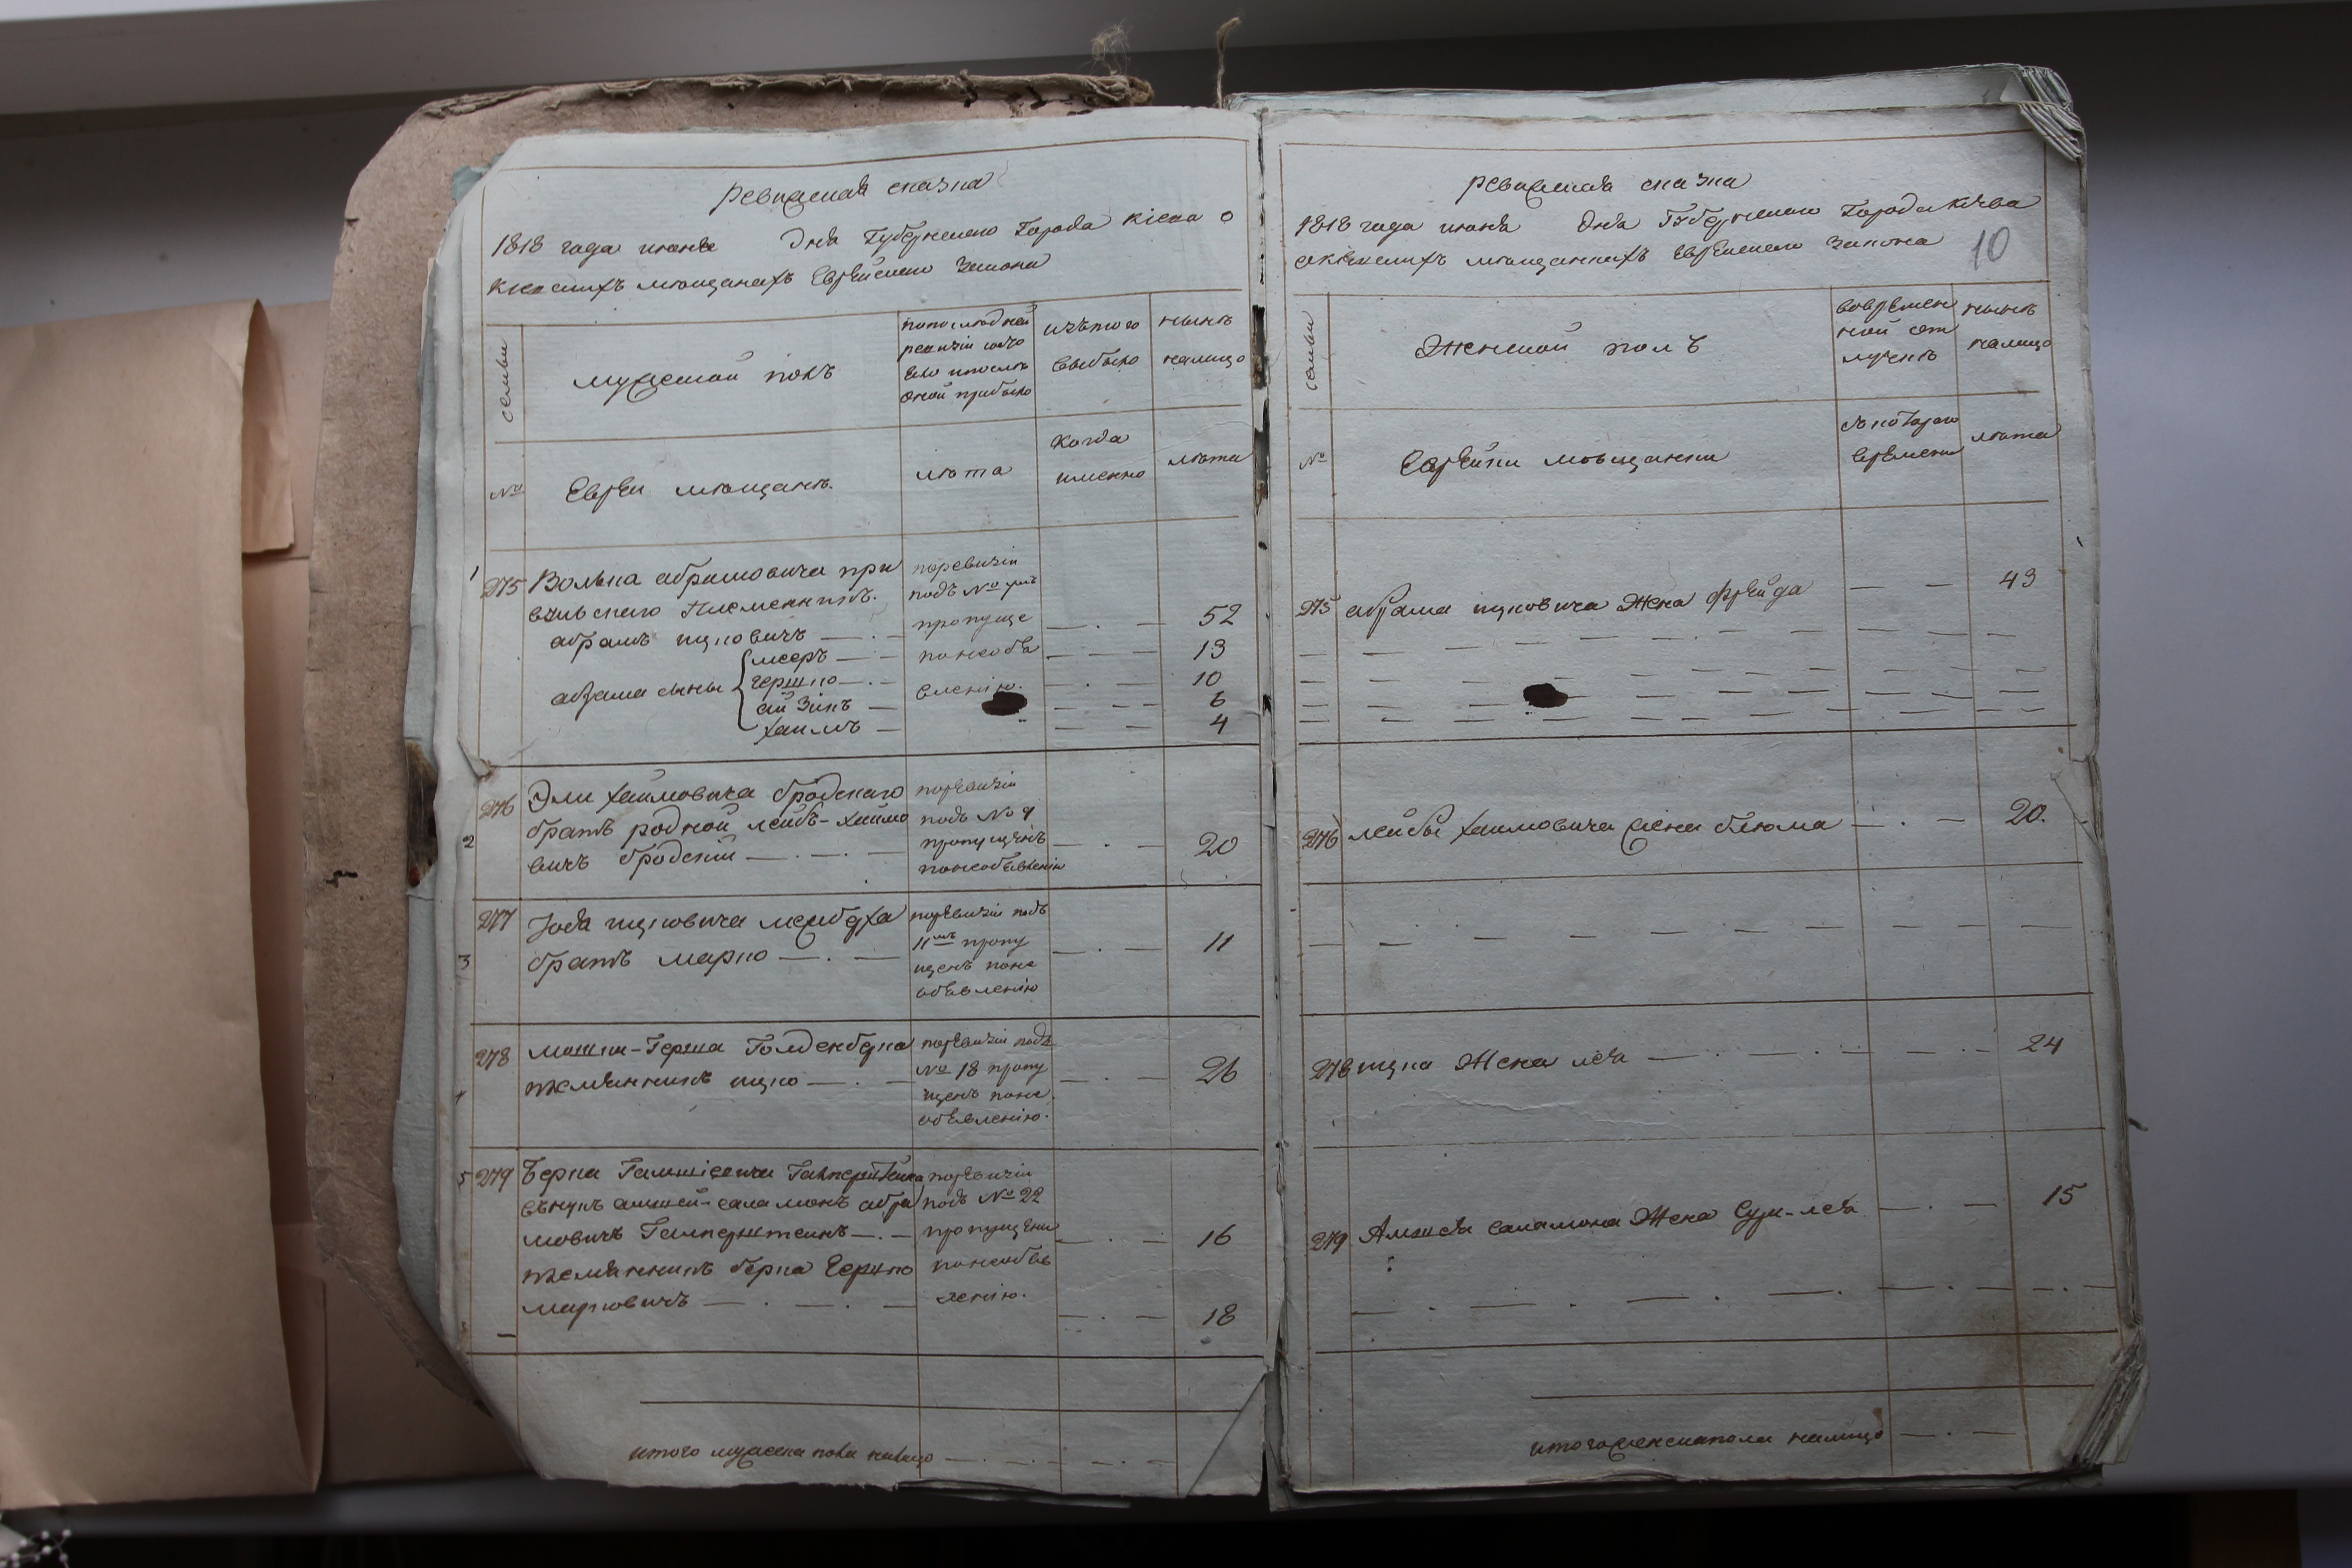 ревижская сказка
1818 года июня дня Губернского Города Кіева о
Кіевскихъ мѣщанахъ Еврейского Закона
семьи
мужеской полъ
попоследней
ревизіи состо
яло и после
оной прибыло
изътого
выбыло
нынѣ
налицо
№
Евреи мещане.
лѣта
когда
именно
лѣта
1
275 Волька абрамовича при
племянникъ.
абрамъ ицковичъ
поревизіи
подъ №
пропуще
52
абрама сыны
мееръ
понеобѣя
13
гершко
вленію.
10
айзикъ
6
хаимъ
4
2
276 Эли хаимовича бродскаго
братъ родной лейбъ-хаимо
вичъ бродскій
поревизіи
подъ № 9
пропущенъ
понеобъявленію
20
3
277 Іося ицковича
братъ марко
поревизіи подъ
11мъ пропу
щенъ поне
объявленію
11
4
278 мошки-Герша Голденберга
племянникъ ицко
поревизіи подъ
№ 18 пропу
щенъ поне
объявленію.
26
5 279 Берка Галперштейна
внукъ амшей-саламонъ абра
мовичъ Галперштейнъ
племянникъ берка Гершко
марковичъ
поревизіи
подъ № 22
пропущени
понеобъяв
ленію.
16
18
итого мужеска пола налицо
ревижская сказка
1818 года июня дня Губернского Города Кіева
окіевскихъ мещанкахъ Еврейского Закона
10
семьи
Женской полъ
вовремен
ной от
лучкѣ
нынѣ
налицо
№
Еврейки мѣщанки
съкоторого
времени
лѣта
275 абрама ицковича Жена фрейда
43
276 лейбы хаимовича жена блюма
20.
278 ицка Жена лея
24
279 Амшея саламона Жена Сура-лея
15
итого женска пола налицо